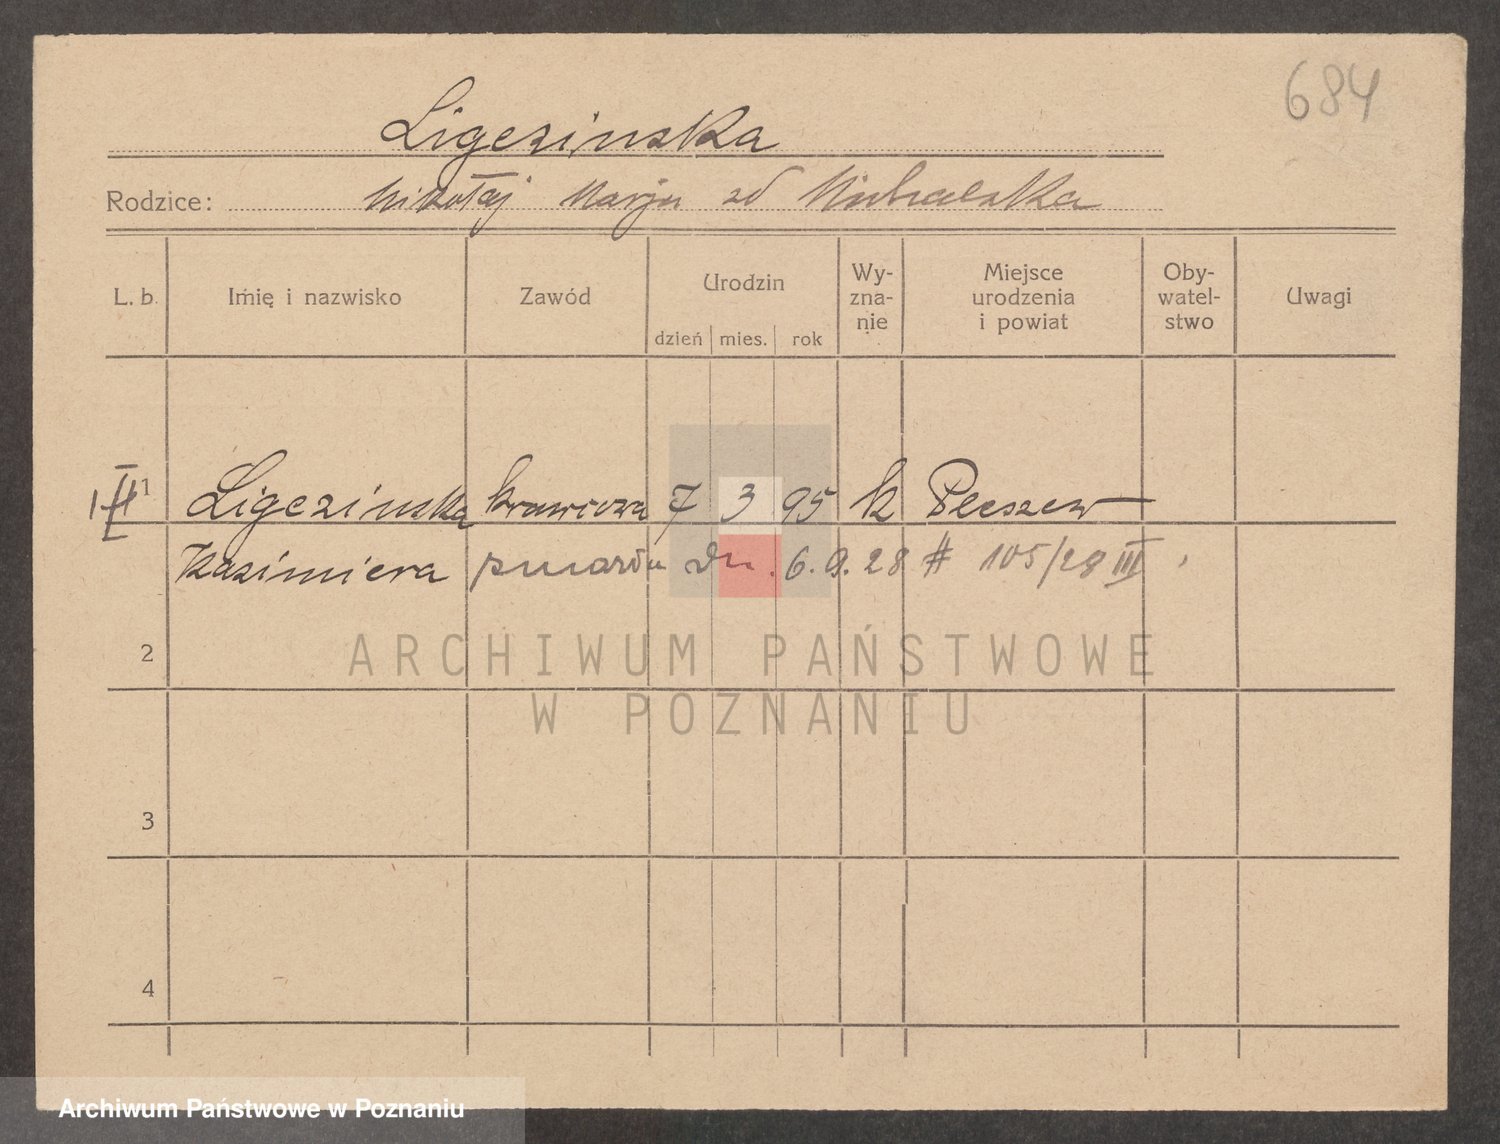 684
Ligczinska
Rodzice: Mikołaj Marja zd
L. b. Imię i nazwisko Zawód Urodzin dzień mies. rok Wy-zna-nie Miejsce urodzenia i powiat Oby-watel-stwo Uwagi
1 Ligczinska krawcowa 7 3 95 k Pleszew
Kazimiera zmarła dn. 6.9.28 # 105/28 III
2
ARCHIWUM PAŃSTWOWE
W POZNANIU
3
4
Archiwum Państwowe w Poznaniu